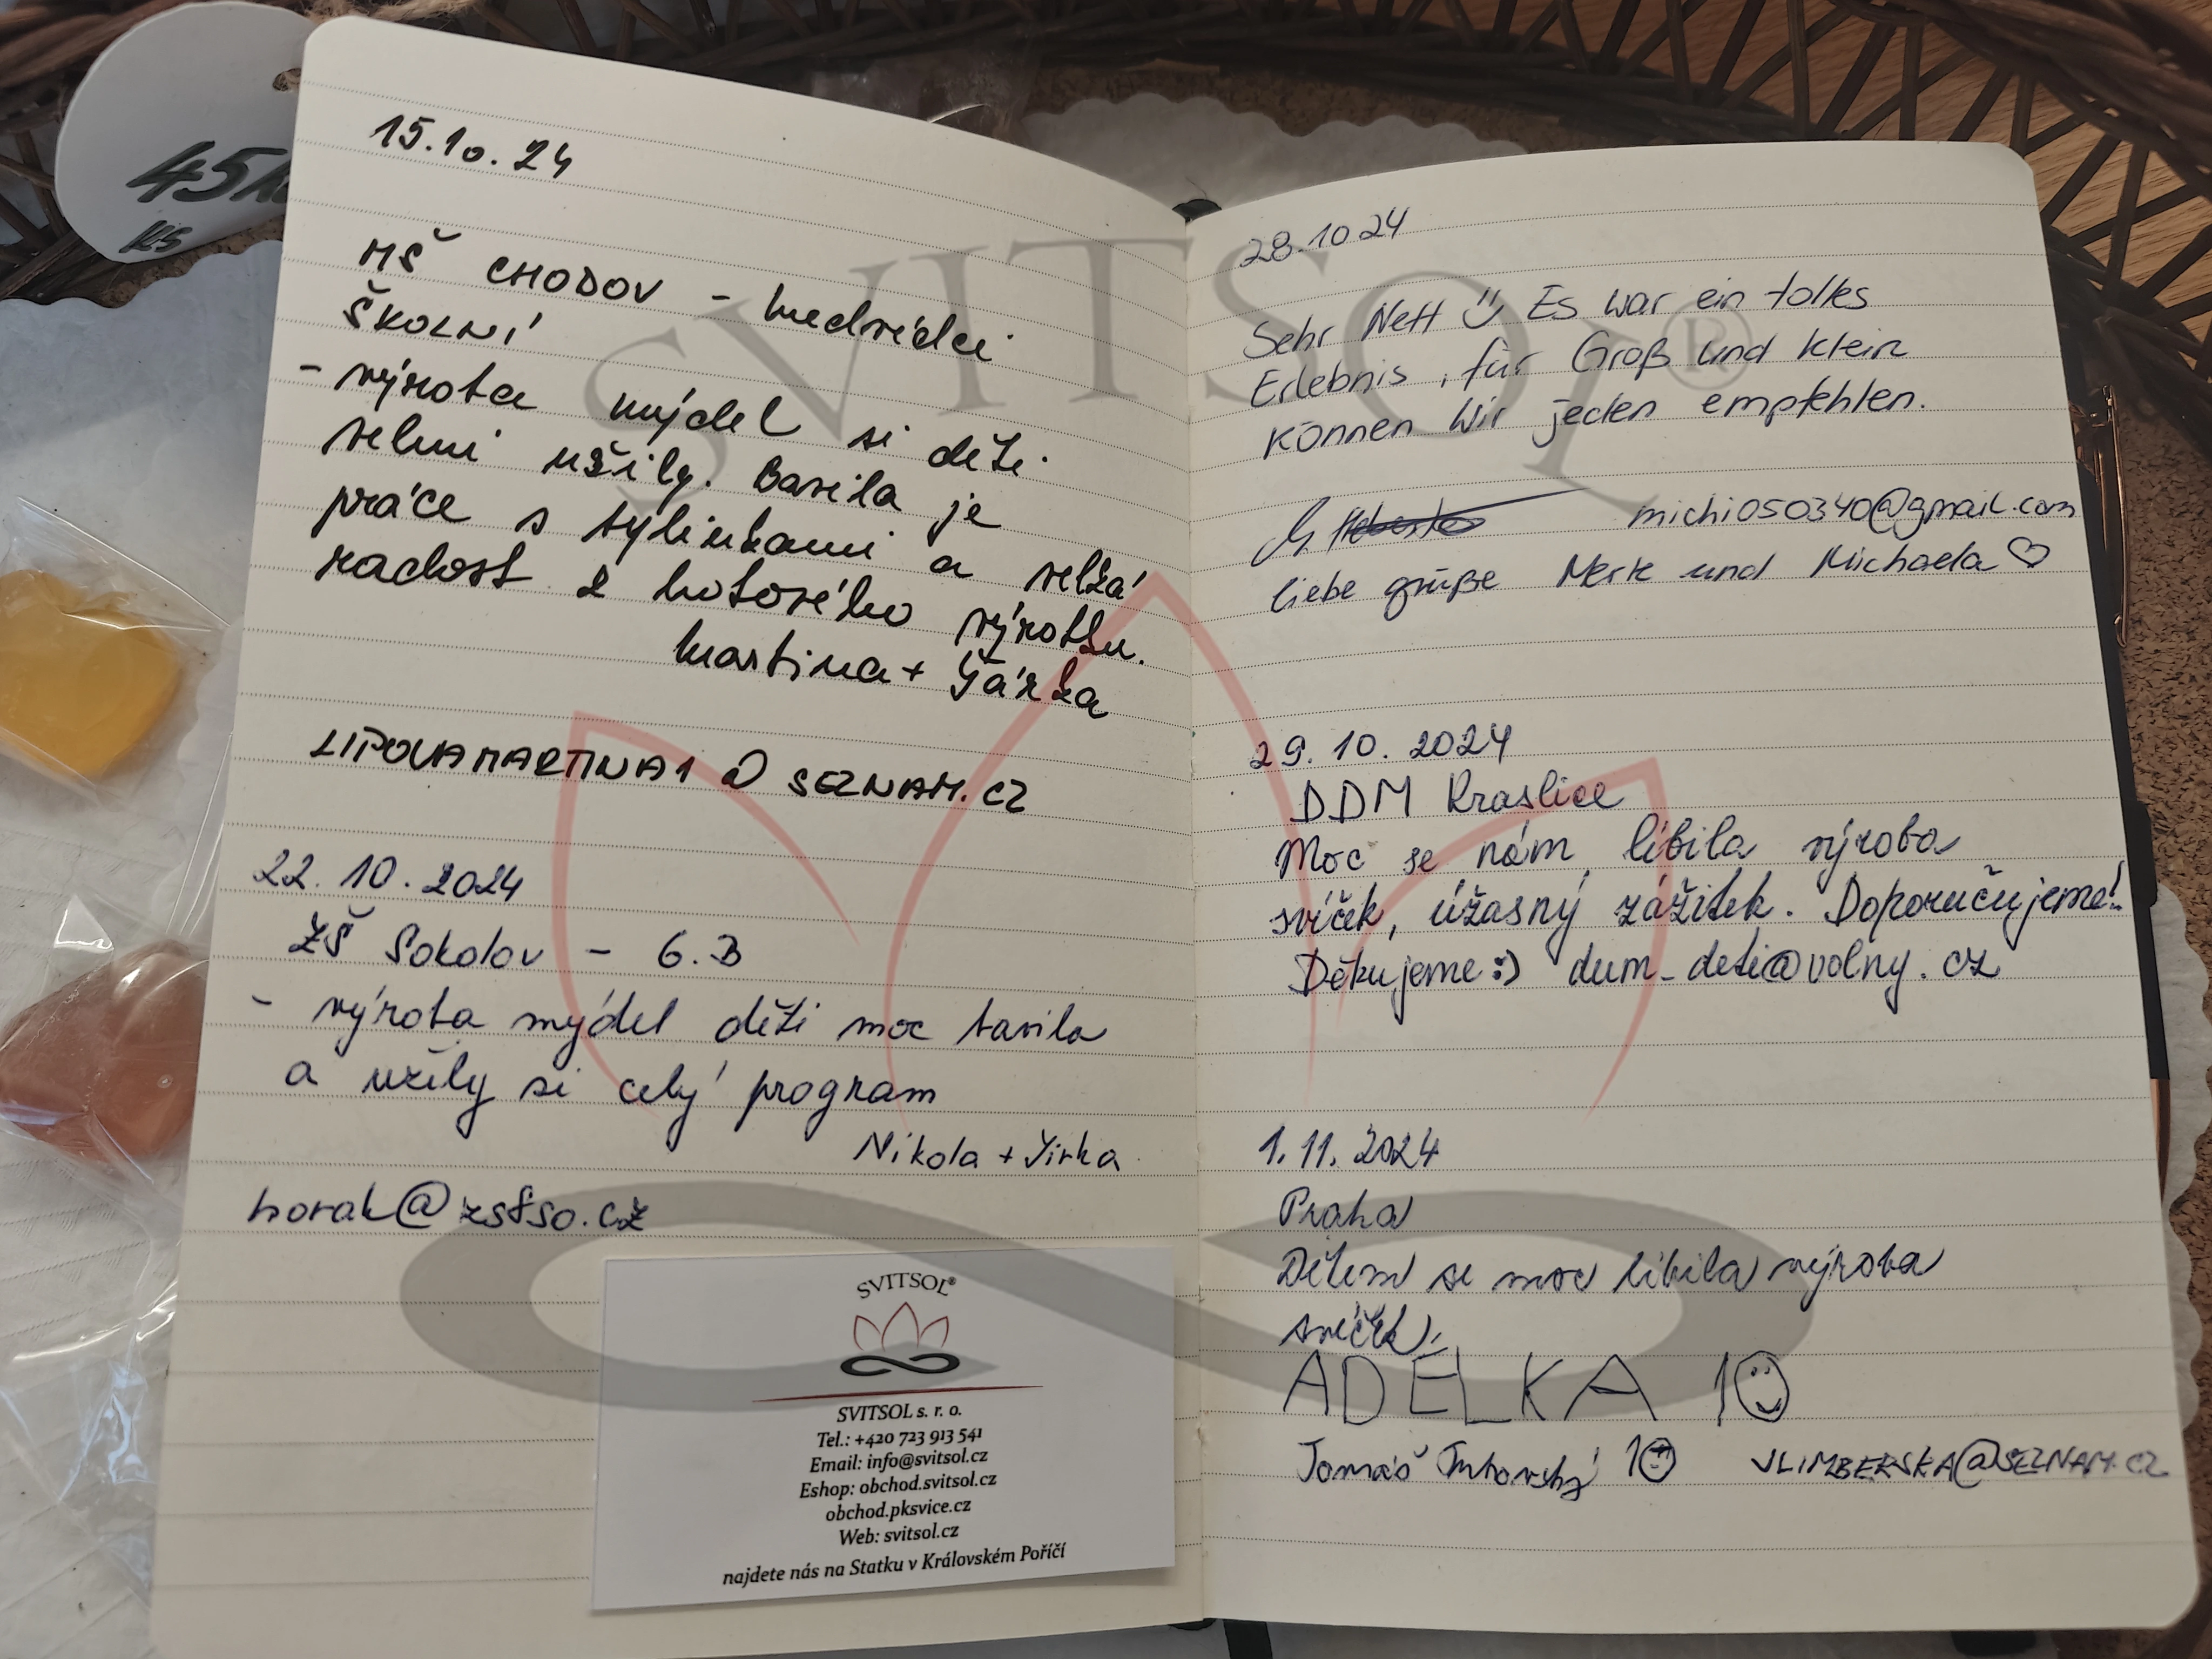 45
KS
15.10.24
MŠ CHODOV - medvídci
ŠKOLNÍ
- výroba mýdel si děti
velmi užily. Bavila je
práce s bylinkami a velká
radost z hotového výrobku.
Martina + Šárka
LIPOVAMARTINA1@SEZNAM.CZ
22.10.2024
ZŠ Sokolov - 6.B
- výroba mýdel děti moc bavila
a užily si celý program
Nikola + Jirka
horak@zs8so.cz
SVITSOL®
SVITSOL s. r. o.
Tel.: +420 723 913 541
Email: info@svitsol.cz
Eshop: obchod.svitsol.cz
obchod.pksvice.cz
Web: svitsol.cz
najdete nás na Statku v Královském Poříčí
28.10 24
Sehr Nett Es war ein tolles
Erlebnis, für Groß und Klein
können Wir jeden empfehlen.
michi050340@gmail.com
liebe grüße und Michaela ♡
29.10.2024
DDM Kraslice
Moc se nám líbila výroba
svíček, úžasný zážitek. Doporučujeme!
Děkujeme :) dum_deti@volny.cz
1.11.2024
Praha
Dětem se moc líbila výroba
svíček,
ADÉLKA 10
Tomáš 10 VLIMBERSKA@SEZNAM.CZ
SVITSOL®